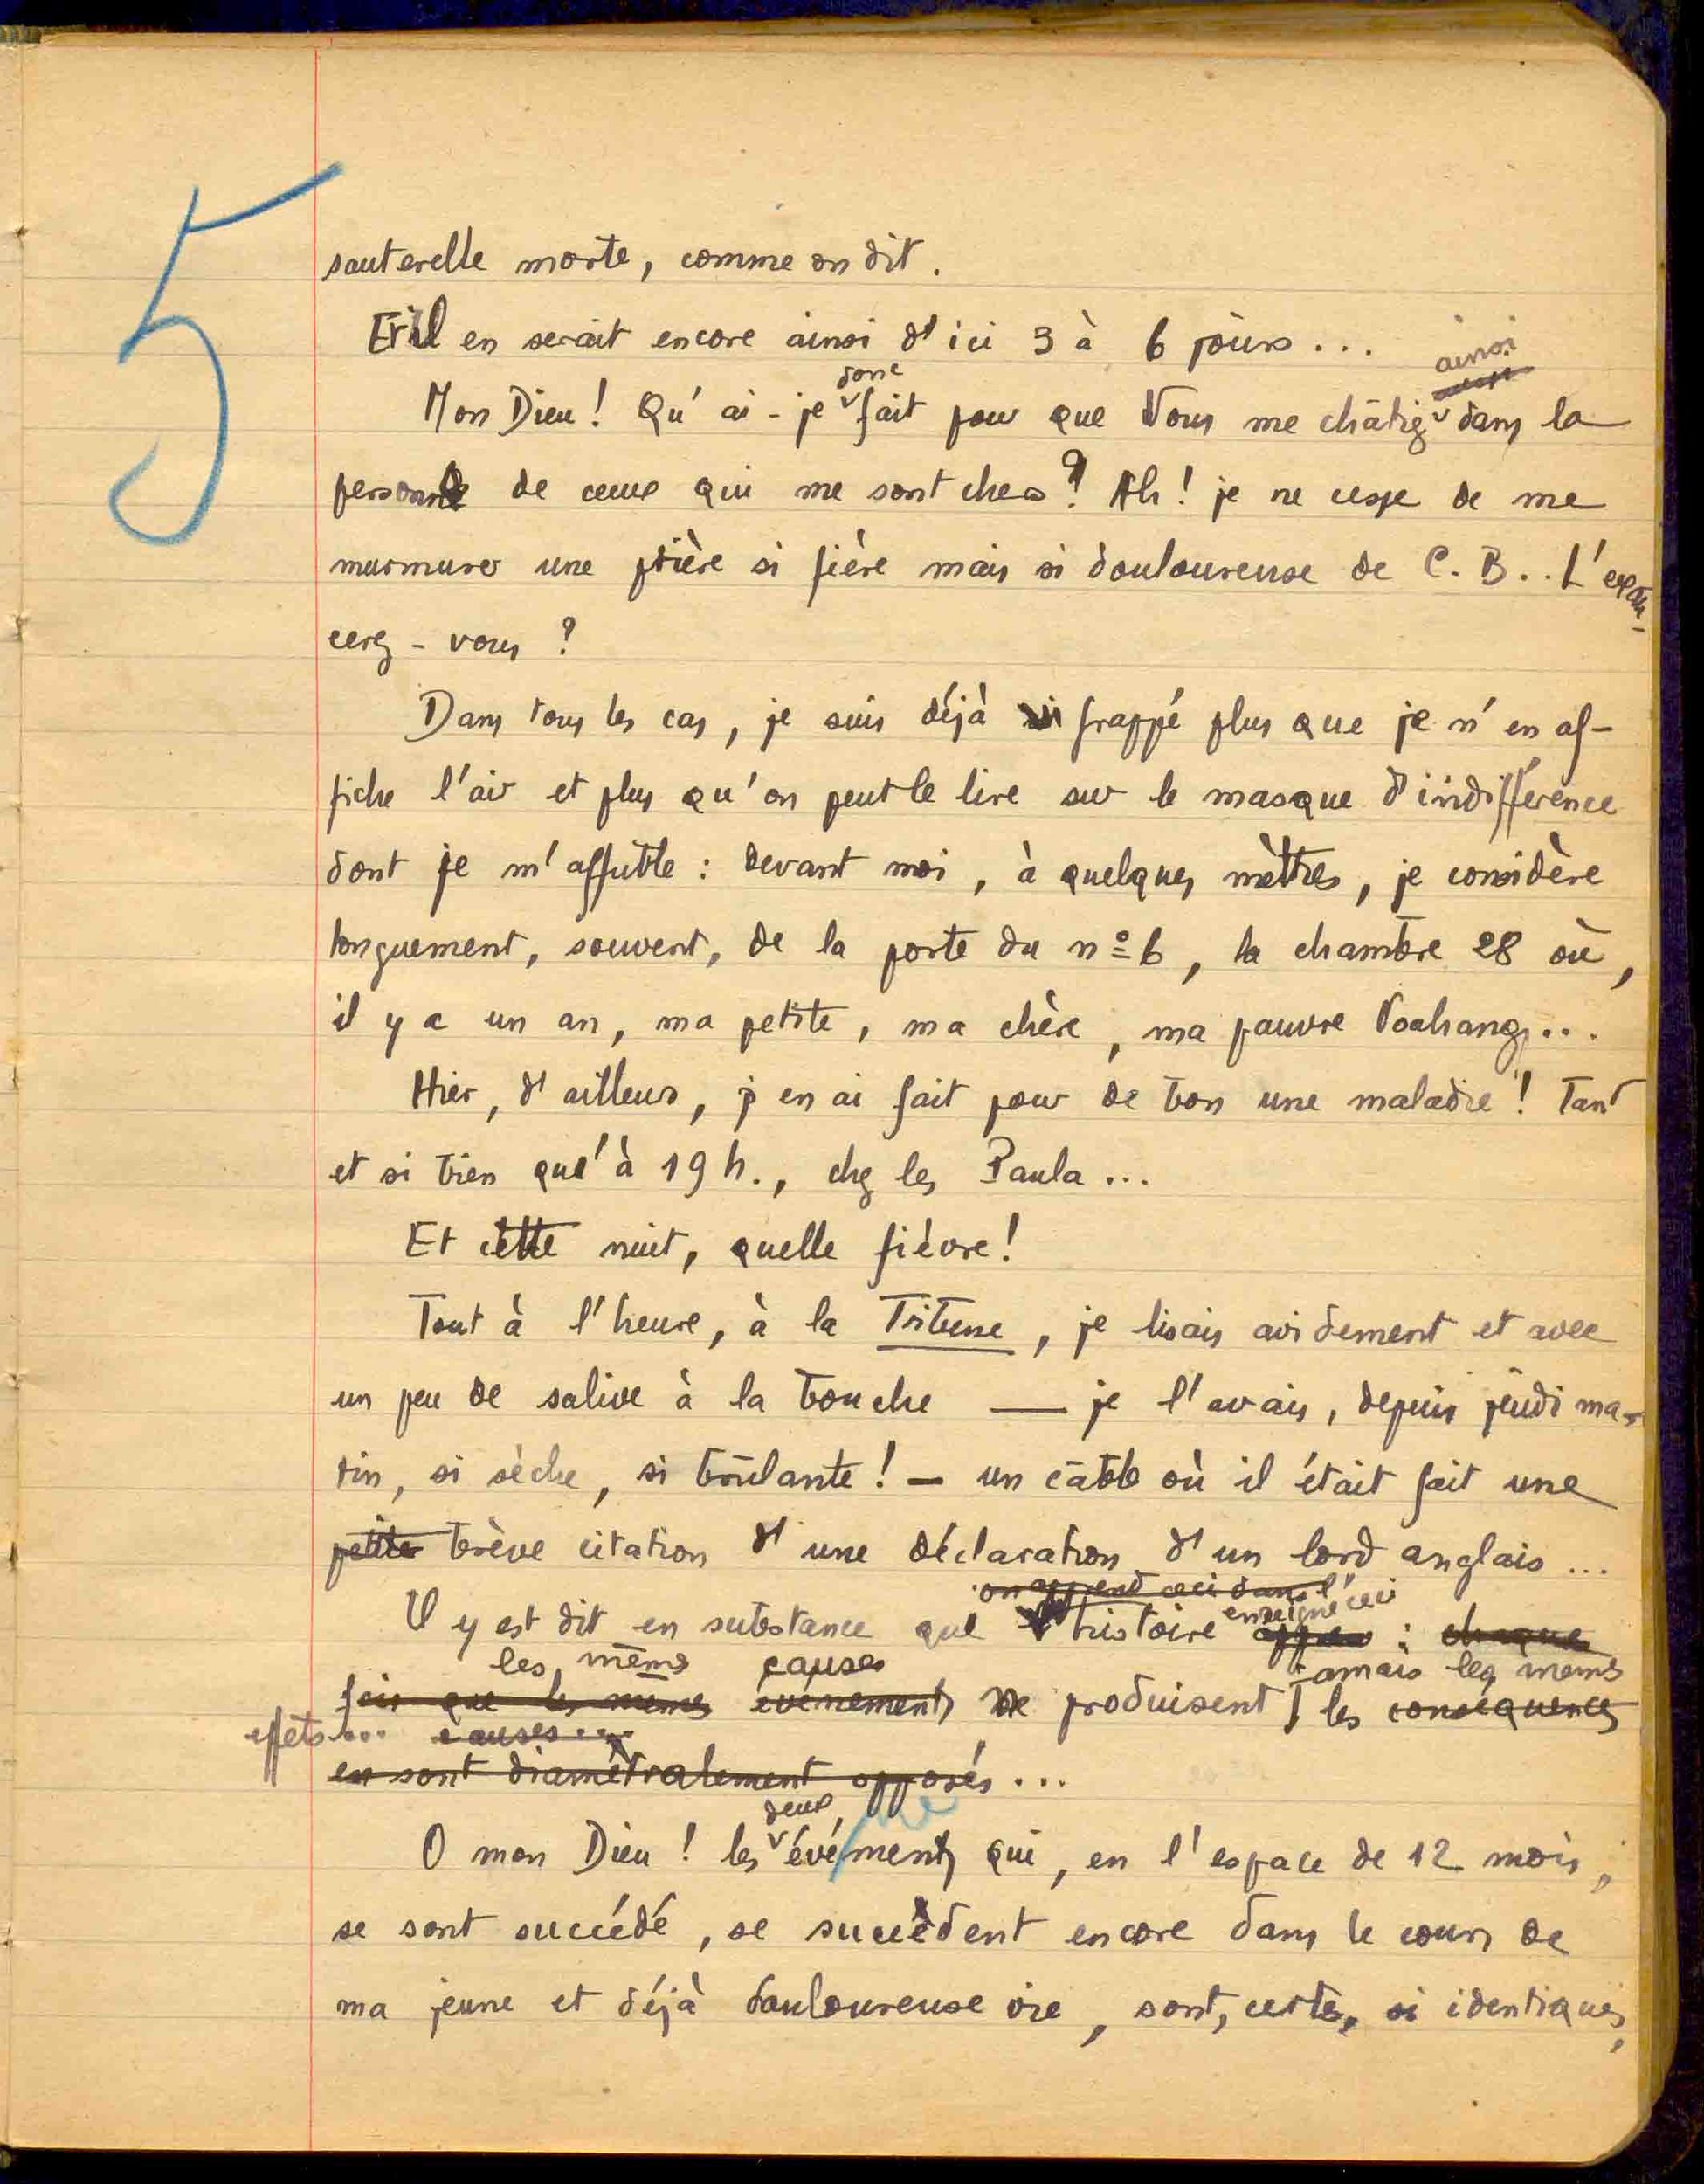 5
sauterelle morte, comme on dit.
Et il en serait encore ainsi d'ici 3 à 6 jours...
ainsi
donc
Mon Dieu! Qu'ai-je fait pour que Vous me châtiez dans la
personne de ceux qui me sont chers? Ah! je ne cesse de me
murmurer une prière si fière mais si douloureuse de C. B.. L'exau-
cerez-vous?
Dans tous les cas, je suis déjà frappé plus que je n'en af-
fiche l'air et plus qu'on peut le lire sur le masque d'indifférence
dont je m'affuble : devant moi, à quelques mètres, je considère
longuement, souvent, de la porte du nº 6, la chambre 28 où,
il y a un an, ma petite, ma chère, ma pauvre Voahang...
Hier, d'ailleurs, j'en ai fait pour de bon une maladie! Tant
et si bien qu'à 19 h., chez les Paula...
Et cette nuit, quelle fièvre!
Tout à l'heure, à la Tribune, je lisais avidement et avec
un peu de salive à la bouche — je l'avais, depuis jeudi ma-
tin, si sèche, si brûlante! — un câble où il était fait une
petite brève citation d'une déclaration d'un lord anglais...
on apprend ceci dans l'
enseigne ceci
Il y est dit en substance que l'histoire : chaque
les mêmes causes jamais les mêmes
fois que les mêmes évènements se produisent les conséquences
effets... causes...
en sont diamétralement opposés...
deux
ne
O mon Dieu! les événements qui, en l'espace de 12 mois,
se sont succédé, se succèdent encore dans le cours de
ma jeune et déjà douloureuse vie, sont, certes, si identiques,